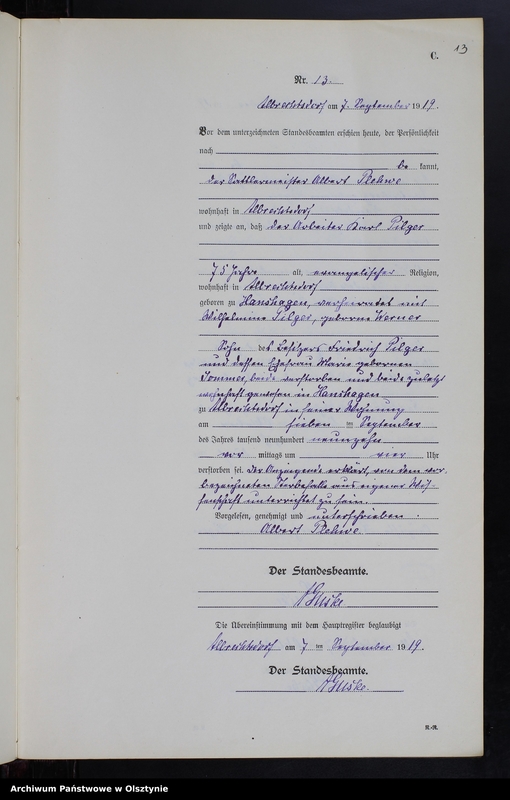 13
C.
Nr. 13.
Albrechtsdorf am 7. September 1919.
Vor dem unterzeichneten Standesbeamten erschien heute, der Persönlichkeit
nach
be kannt,
der Sattlermeister Albert Plehwe
wohnhaft in Albrechtsdorf
und zeigte an, daß der Arbeiter Karl Pilger
75 Jahre alt, evangelischer Religion,
wohnhaft in Albrechtsdorf
geboren zu Hanshagen, verheiratet mit
Wilhelmine Pilger, geborne Werner
Sohn des Besitzers Friedrich Pilger
und dessen Ehefrau Marie gebornen
Sommer, beide verstorben und beide zuletzt
wohnhaft gewesen in Hanshagen
zu Albrechtsdorf in seiner Wohnung
am sieben ten September
des Jahres tausend neunhundert neunzehn
vor mittags um vier Uhr
verstorben sei. Der Anzeigende erklärt, von dem vor.
bezeichneten Sterbefalle aus eigener Wis-
senschaft unterrichtet zu sein.
Vorgelesen, genehmigt und unterschrieben.
Albert Plehwe.
Der Standesbeamte.
Guske
Die Übereinstimmung mit dem Hauptregister beglaubigt
Albrechtsdorf am 7 ten September 1919.
Der Standesbeamte.
Guske.
Archiwum Państwowe w Olsztynie